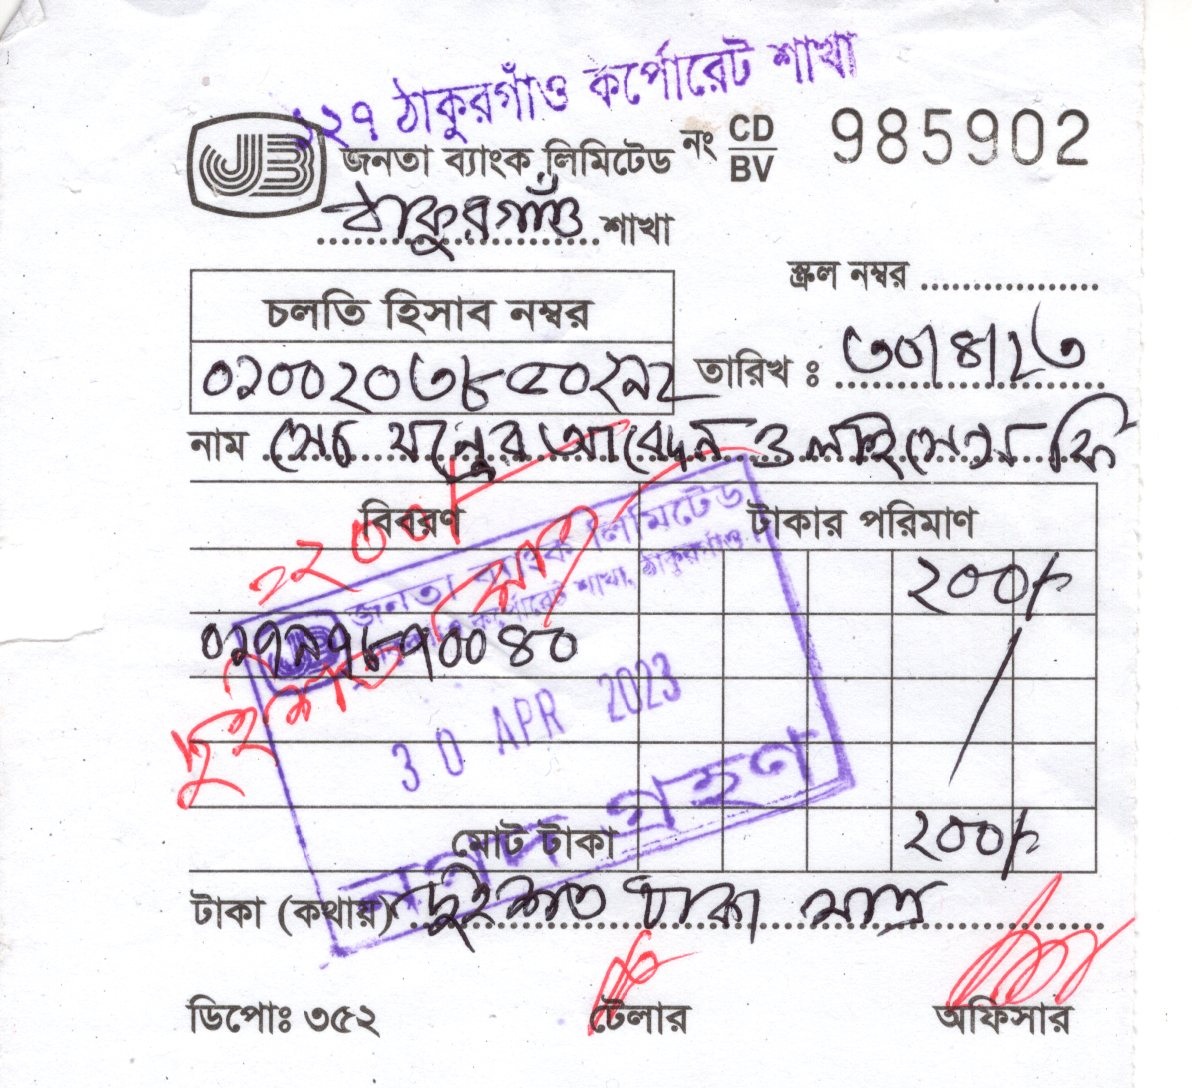 ১২৭ ঠাকুরগাঁও কর্পোরেট শাখা
JB জনতা ব্যাংক লিমিটেড নং CD/BV 985902
ঠাকুরগাঁও শাখা
স্ক্রল নম্বর
চলতি হিসাব নম্বর
তারিখ : ৩০/৪/২৩
নাম সেচ যন্ত্রের আবেদন ও লাইসেন্স ফি
বিবরণ টাকার পরিমাণ
জনতা ব্যাংক লিমিটেড
কর্পোরেট শাখা, ঠাকুরগাঁও
২০০/-
০১৭১৭৮৭০০৪০
30 APR 2023
নগদ গ্রহণ
মোট টাকা ২০০/-
টাকা (কথায়) দুইশত টাকা মাত্র
ডিপোঃ ৩৫২ টেলার অফিসার